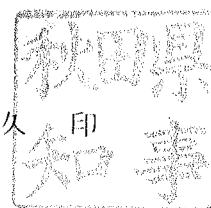 秋田県
久 印
知事